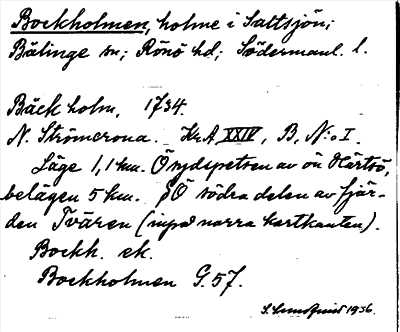 Bockholmen, holme i Saltsjön;
Bälinge sn; Rönö hd; Södermanl. l.
Bäckholm, 1734.
N. Strömcrona. Kr.A. XXIV, B, N:o I.
Läge 1,1 km. Ö sydspetsen av ön Hartsö,
belägen 5 km. SÖ södra delen av fjär-
den Tvären (inpå norra kartkanten).
Bockh. ek.
Bockholmen G. 57.
S. Lundqvist 1936.